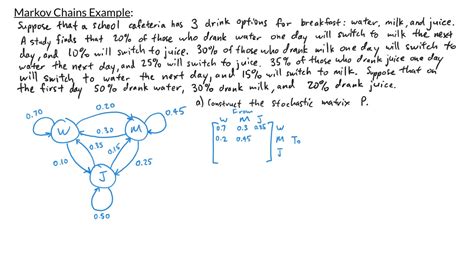 Markov Chains Example:
Suppose that a school cafeteria has 3 drink options for breakfast: water, milk, and juice.
A study finds that 20% of those who drank water one day will switch to milk the next
day, and 10% will switch to juice. 30% of those who drank milk one day will switch to
water the next day, and 25% will switch to juice. 35% of those who drank juice one day
will switch to water the next day, and 15% will switch to milk. Suppose that on
the first day 50% drank water, 30% drank milk, and 20% drank juice.
a) Construct the stochastic matrix P.
From
W M J
0.7 0.3 0.35 W
0.2 0.45 M To
J
0.70
0.20
0.45
W
0.30
M
0.35
0.15
0.10
0.25
J
0.50